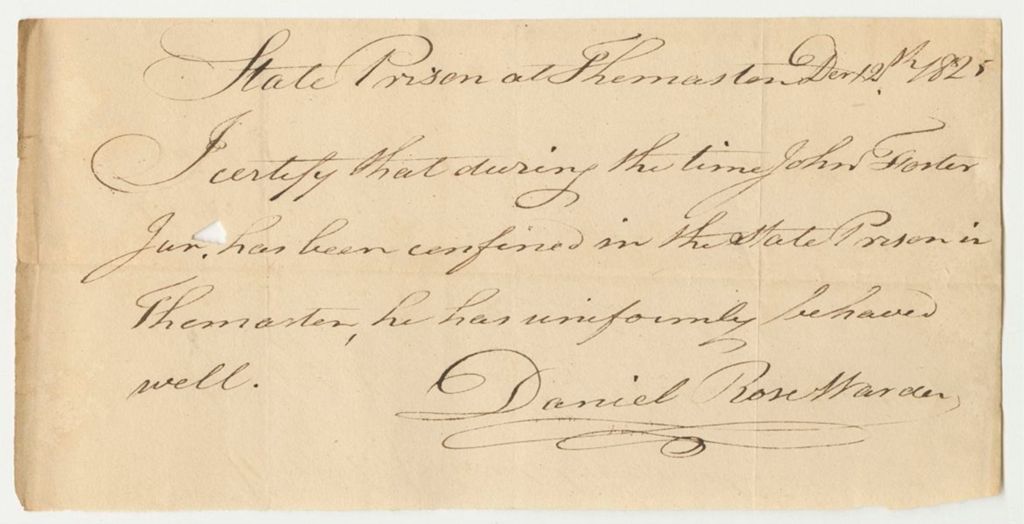 State Prison at Thomaston Decr 12th 1825
I certify that during the time John Foster
Junr. has been confined in the State Prison in
Thomaston, he has uniformly behaved
well.
Daniel Rose Warden